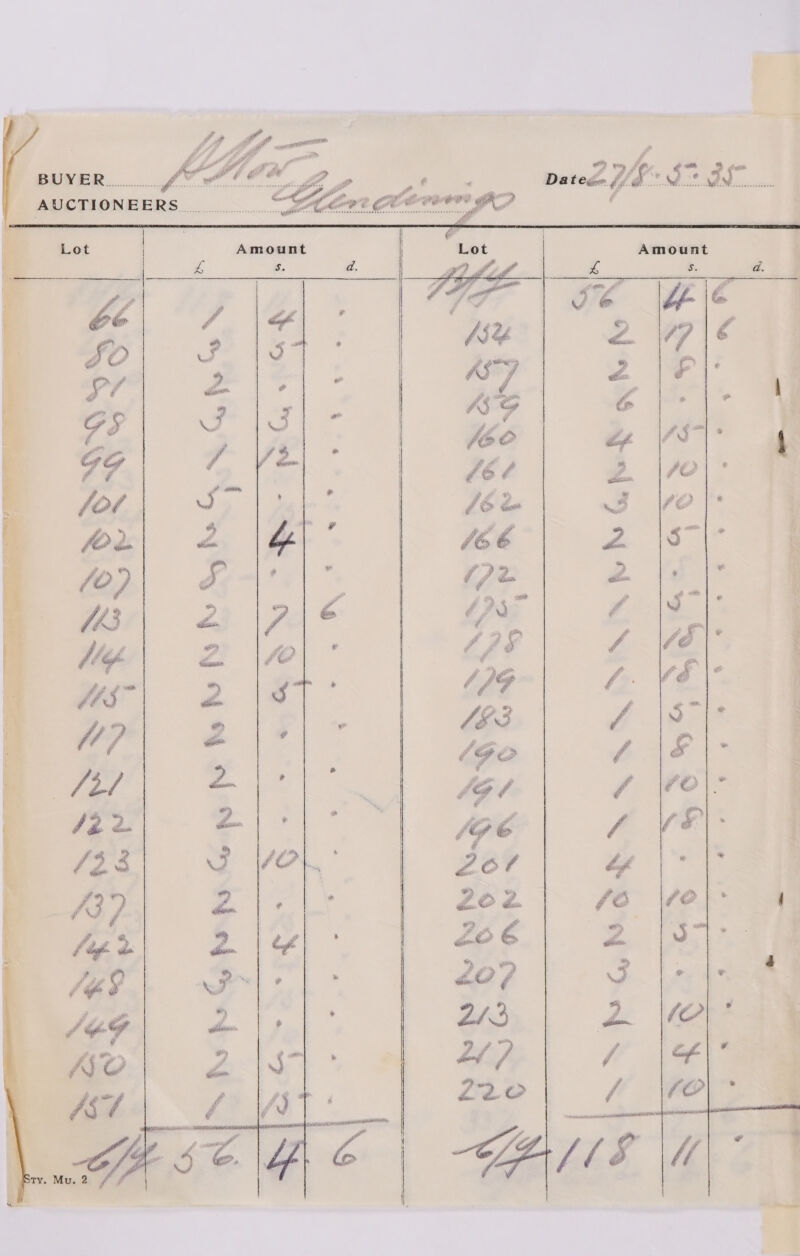 BUYER Date 27/8-5-35
AUCTIONEERS Glendinings
Lot Amount Lot Amount
£ s. d. B/F £ s. d.
56 4 6
66 1 4 · 154 2 17 6
80 3 5 · 157 2 8 ·
81 2 · · 159 6 · ·
98 3 3 · 160 4 15 ·
99 1 12 · 161 2 10 ·
101 5 · · 162 3 10 ·
102 2 4 · 166 2 5 ·
107 8 · · 172 2 · ·
113 2 7 6 175 1 5 ·
114 2 10 · 178 1 18 ·
115 2 5 · 179 1 18 ·
117 2 · · 183 1 5 ·
121 2 · · 190 1 8 ·
122 2 · · 191 1 10 ·
123 3 10 · 196 1 18 ·
137 2 · · 201 4 · ·
142 2 4 · 202 10 10 ·
148 3 · · 206 2 5 ·
149 2 · · 207 3 · ·
150 2 5 · 213 2 10 ·
151 1 15 · 217 1 4 ·
220 1 10 ·
C/F 56 4 6 C/F 118 11 ·
Sty. Mu. 2